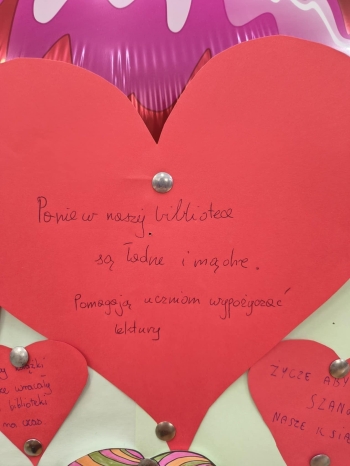 Panie w naszej bibliotece
są ładne i mądre.
Pomagają uczniom wypożyczać
lektury
wracały
biblioteki
na czas
ŻYCZĘ ABY
SZANO
NASZE KSIĄ